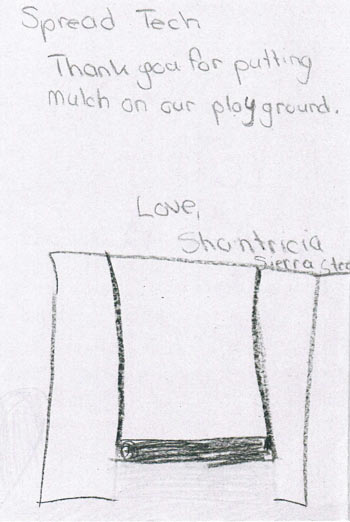 Spread Tech
Thank you for putting
mulch on our playground.
Love,
Shantricia
Sierra